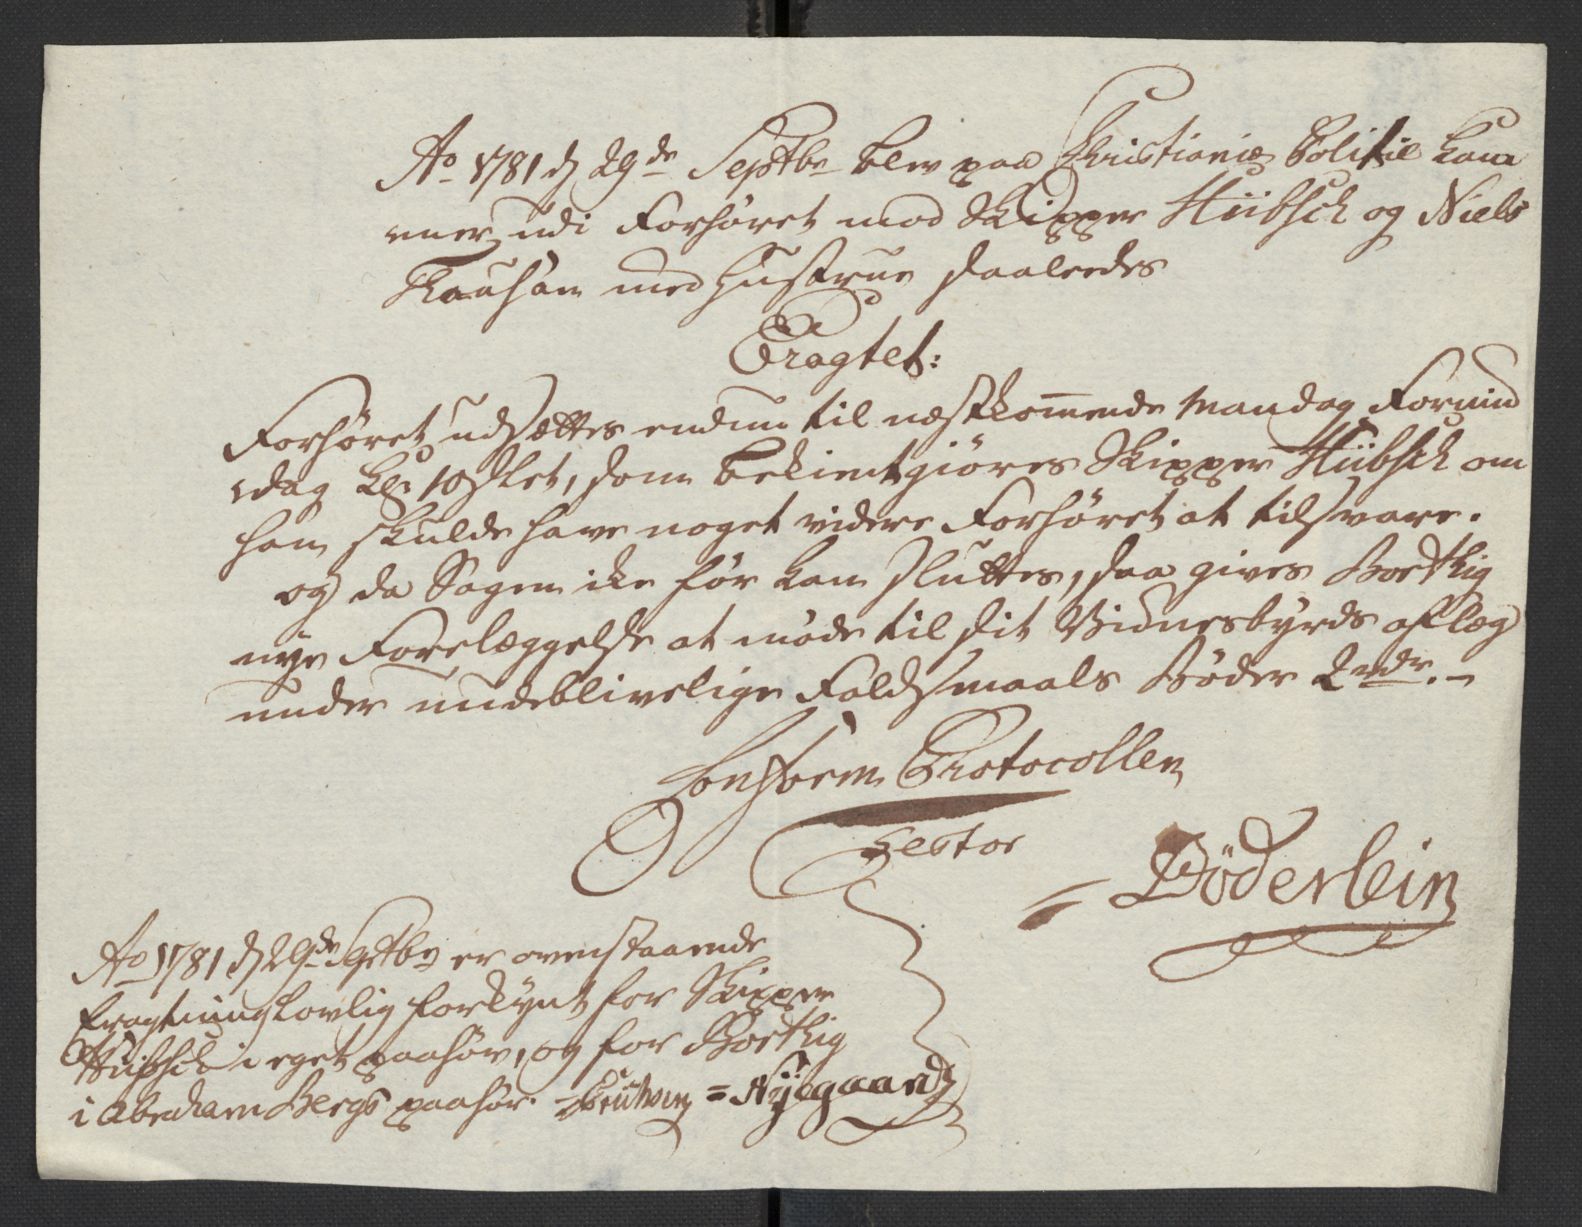 Ao 1781 d 29de Septbr blev paa Christianiæ Politie Kam
mer udi Forhøret mod Skipper Hübsch og Niels
Knudsen med Hustrue saaledes
Eragtet:
Forhøret udsættes endnu til næstkommende Mandag Formid
dag Kl: 10 Slet, som bekientgiøres Skipper Hübsch om
han skulde have noget videre Forhøret at tilsvare.
og da Sagen ike før kan sluttes, saa gives Boethig
nye Forelæggelse at møde til sit Vidnesbyrds aflæg
under undeblivelige Faldsmaals Bøder 2 rdr. –
Conform Protocollen
Testor
Döderlein
Ao 1781 d 29de Septbr er ovenstaaende
Eragtning Lovlig forkynt for Skipper
Hübsch i eget paahør, og for Boethig
i Abraham Bergs paahør. = Nÿegaard